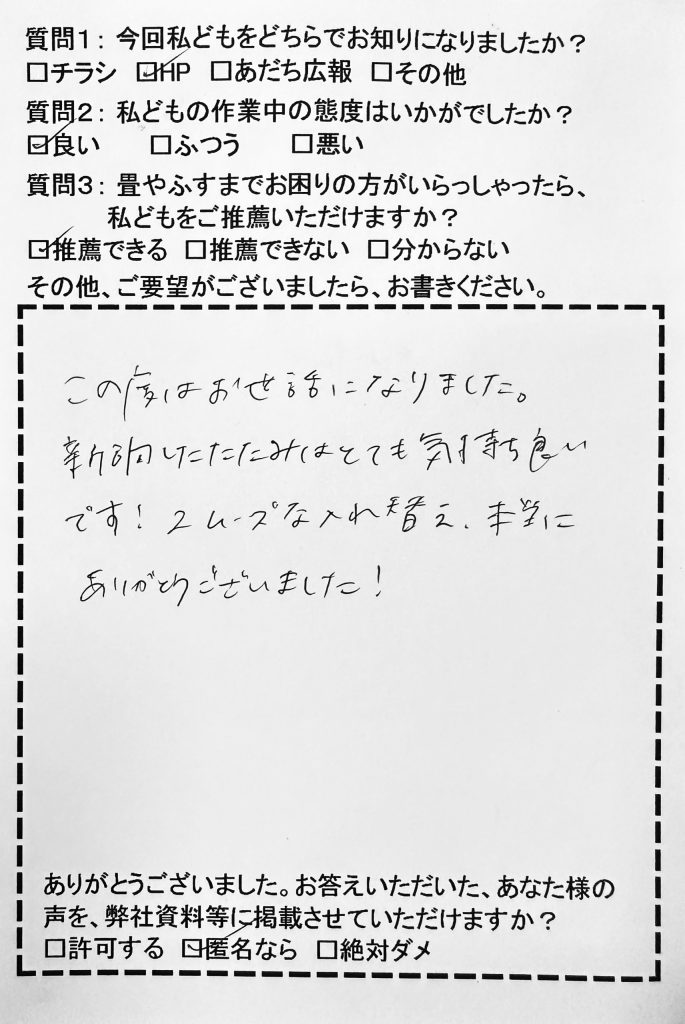 質問1：今回私どもをどちらでお知りになりましたか？
□チラシ ☑HP □あだち広報 □その他
質問2：私どもの作業中の態度はいかがでしたか？
☑良い □ふつう □悪い
質問3：畳やふすまでお困りの方がいらっしゃったら、
私どもをご推薦いただけますか？
☑推薦できる □推薦できない □分からない
その他、ご要望がございましたら、お書きください。
この度はお世話になりました。
新調したたたみはとても気持ち良い
です！スムーズな入れ替え、本当に
ありがとうございました！
ありがとうございました。お答えいただいた、あなた様の
声を、弊社資料等に掲載させていただけますか？
□許可する ☑匿名なら □絶対ダメ